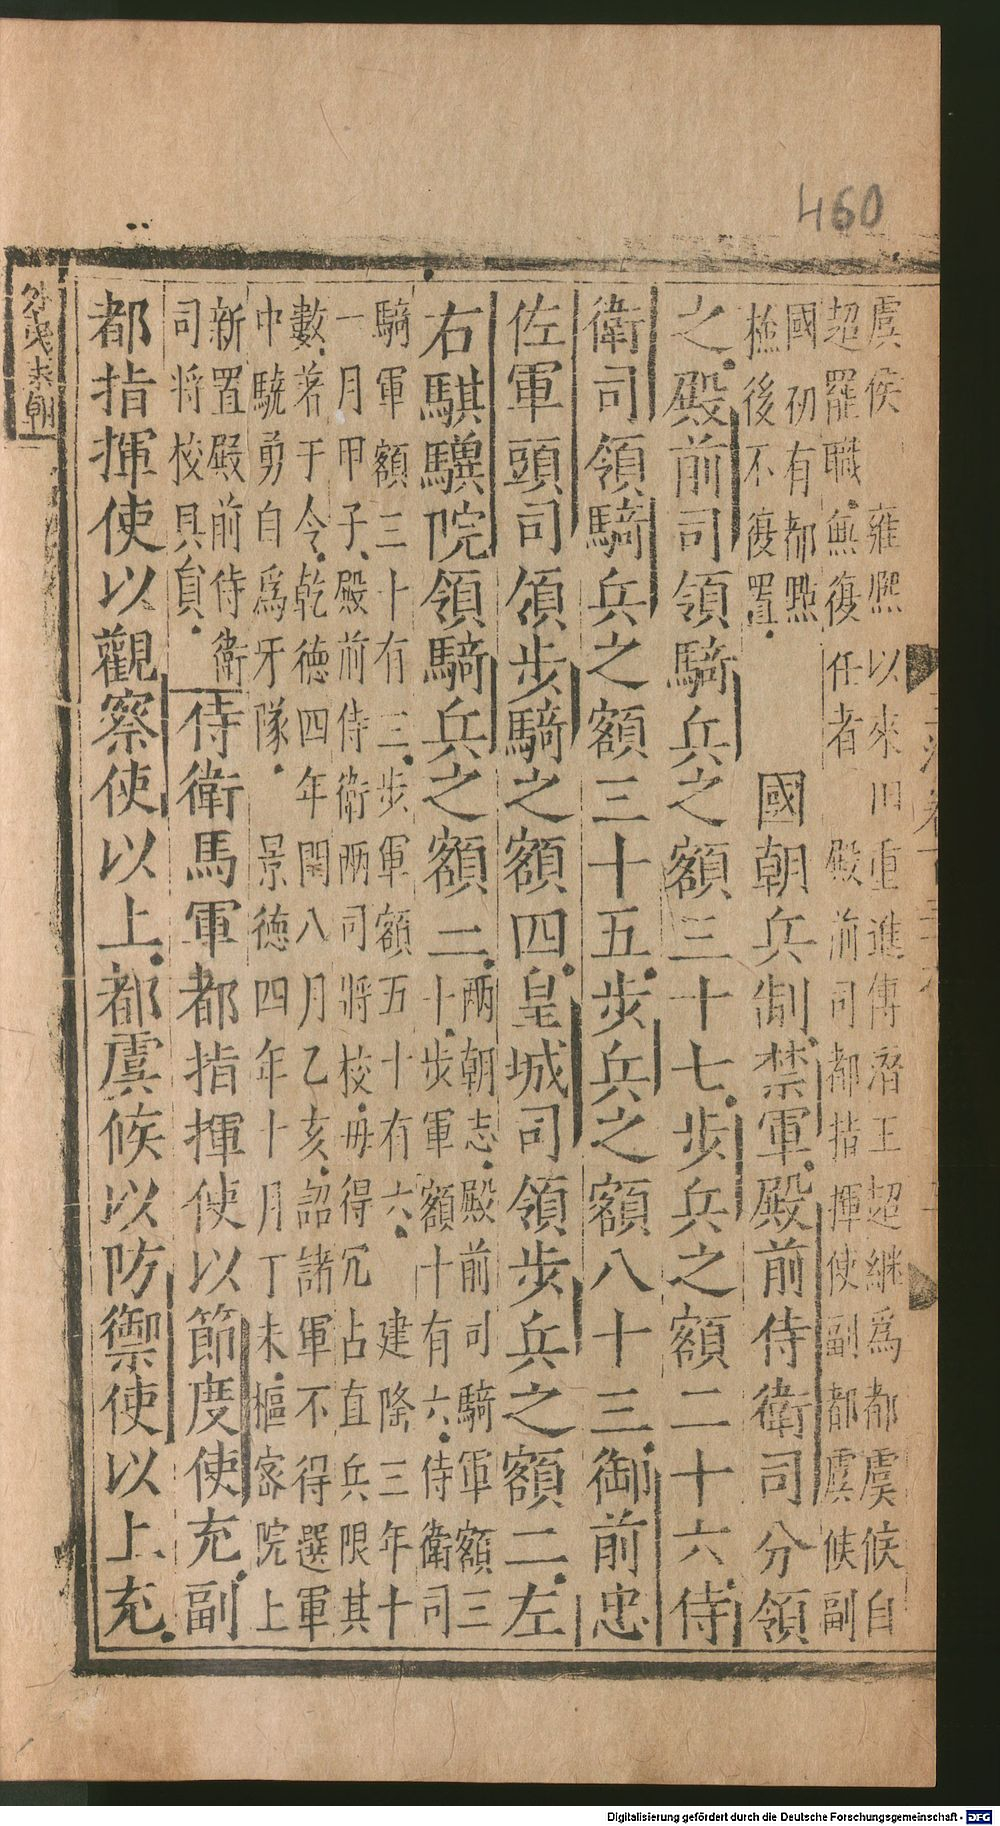 460
虞侯 雍熈以來田重進傅濳王超繼爲都虞候自
超罷職無復任者 殿前司都指揮使副都虞候副
國初有都㸃
檢後不復置 國朝兵制禁軍殿前侍衛司分領
之殿前司領騎兵之額三十七步兵之額二十六侍
衛司領騎兵之額三十五步兵之額八十三御前忠
佐軍頭司領步騎之額四皇城司領步兵之額二左
右騏驥院領騎兵之額二
兩朝志殿前司騎軍額三
十步軍額十有六侍衛司
騎軍額三十有三步軍額五十有六 建隆三年十
一月甲子殿前侍衛兩司將校毋得冗占直兵限其
數著于令乾德四年閏八月乙亥詔諸軍不得選軍
中驍勇自爲牙隊 景德四年十月丁未樞宻院上
新置殿前侍衛
司將校具貟
侍衛馬軍都指揮使以節度使充副
都指揮使以觀察使以上都虞候以防禦使以上充
分職末朝
Digitalisierung gefördert durch die Deutsche Forschungsgemeinschaft - DFG